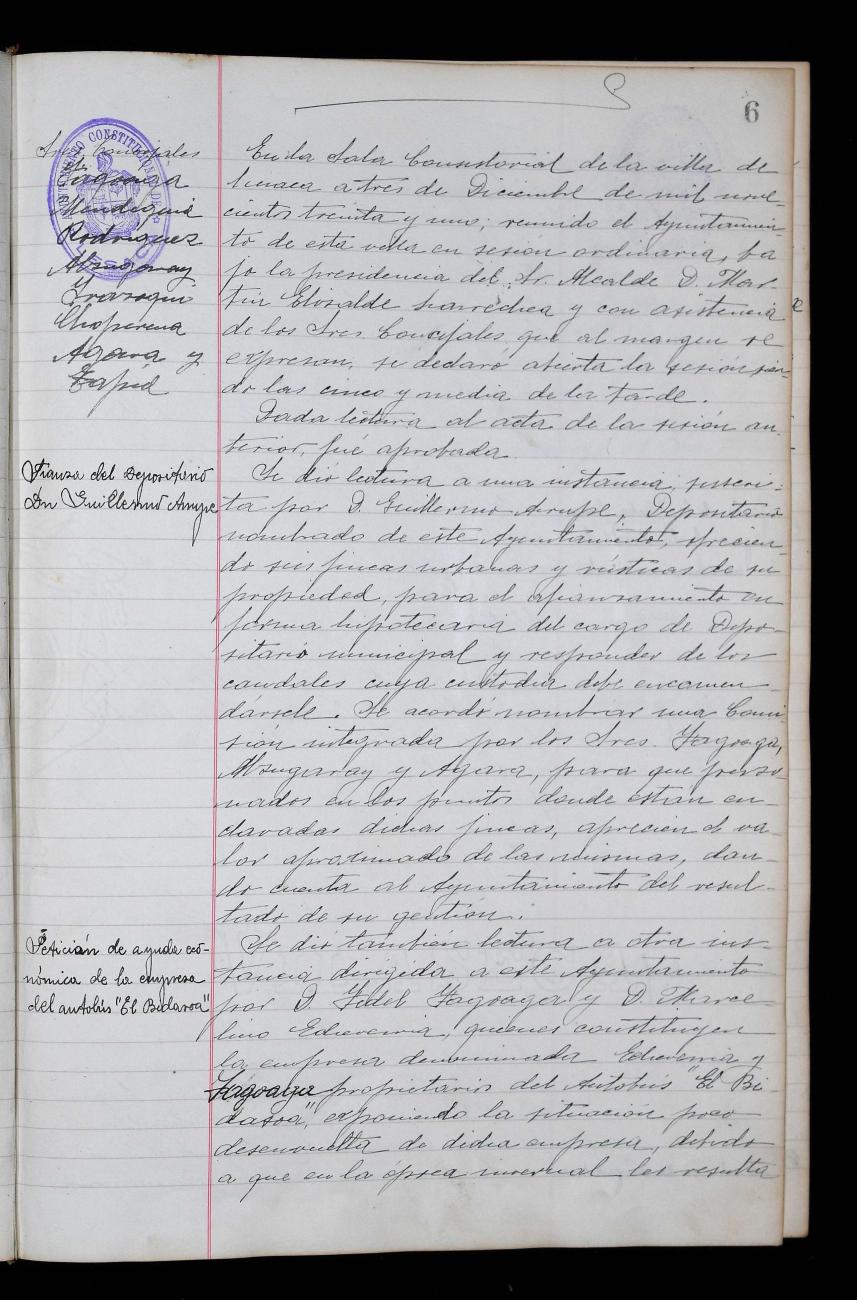 6
Sres Concejales
Fagoaga
Mendiguia
Rodriguez
Alzugaray
Irazoqui
Choperena
Agara y
Tapia
AYUNTAMIENTO CONSTITUCIONAL DE LESACA
En la Sala Consistorial de la villa de
Lesaca a tres de Diciembre de mil nove-
cientos treinta y uno; reunido el Ayuntamien-
to de esta villa en sesión ordinaria, ba
jo la presidencia del Sr. Alcalde D. Mar-
tin Elizalde y con asistencia
de los Sres. Concejales que al margen se
expresan, se declaró abierta la sesión sien-
do las cinco y media de la tarde.
Dada lectura al acta de la sesión an-
terior, fué aprobada.
Fianza del Depositario
Dn Guillermo Arrupe
Se dió lectura a una instancia suscri-
ta por D. Guillermo Arrupe, Depositario
nombrado de este Ayuntamiento, ofrecien-
do seis fincas urbanas y rústicas de su
propiedad, para el afianzamiento en
forma hipotecaria del cargo de Depo-
sitario municipal y responder de los
caudales cuya custodia debe encomen-
dársele. Se acordó nombrar una Comi-
sión integrada por los Sres. Fagoaga,
Alzugaray y Agara, para que perso-
nados en los puntos donde están en-
clavadas dichas fincas, aprecien el va-
lor aproximado de las mismas, dan-
do cuenta al Ayuntamiento del resul-
tado de su gestión.
Petición de ayuda eco-
nómica de la empresa
del autobús "El Bidasoa"
Se dió también lectura a otra ins-
tancia dirigida a este Ayuntamiento
por D. Fidel Fagoaga y D. Marce-
lino Echeverria, quienes constituyen
la empresa denominada Echeverria y
Fagoaga propietarios del Autobús "El Bi
dasoa", exponiendo la situación poco
desenvuelta de dicha empresa, debido
a que en la época invernal les resulta